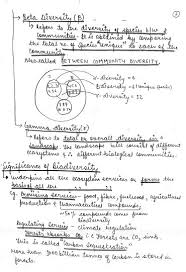 Beta Diversity (β)
→ refers to the diversity of species b/w 2
communities. It is obtained by comparing
the total no. of species unique to each of the
community.
Also called BETWEEN COMMUNITY DIVERSITY.
α-diversity = 6
β-diversity = 8 (unique species)
γ-diversity = 12
Gamma diversity (γ)
→ refers to total or overall diversity in a
landscape. The landscape will consist of different
ecosystems & different biological communities.
Significance of Biodiversity
→ underpins all the ecosystem services so forms the
basis of all
→ Provisioning services - good, fibre, fuelwood, agriculture
production & pharmaceutical compounds.
50% compounds come from
biodiversity
Regulating services - climate regulation
forests absorb CO₂ i.e. forests are CO₂ sink
This is called Carbon Sequestration
More than 300 billion tonnes of carbon is stored in
forests.